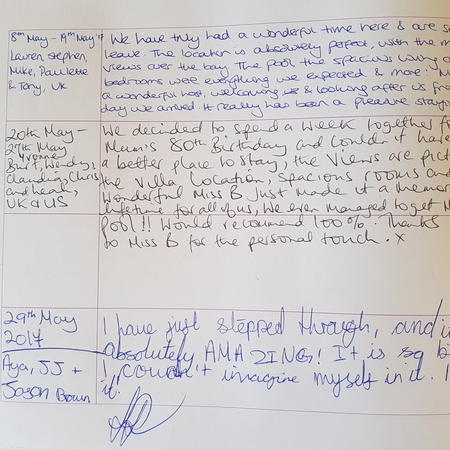 8th May - 19th May '17
Lauren, Stephen,
Mike, Paulette
& Tony, UK
We have truly had a wonderful time here & are
leave. The location is absolutely perfect, with the
views over the bay. The pool, the spacious living
bedrooms were everything we expected & more!
a wonderful host, welcoming us & looking after us
day we arrived. It really has been a pleasure
20th May -
27th May
Yvonne
Burt, Wendy,
Claudine, Chris
and Leah,
UK & US
We decided to spend a week together
Mum's 80th Birthday and couldn't have
a better place to stay, the views are
the Villa location, spacious rooms and
wonderful Miss B just made it a
lifetime for all of us, we even managed to get
pool!! Would recommend 100%. Thanks
to Miss B for the personal touch. x
29th May
2017
Aya, JJ +
Jason Brown
I have just stepped through, and
absolutely AMAZING! It is so
I couldn't imagine myself in it. I
it!